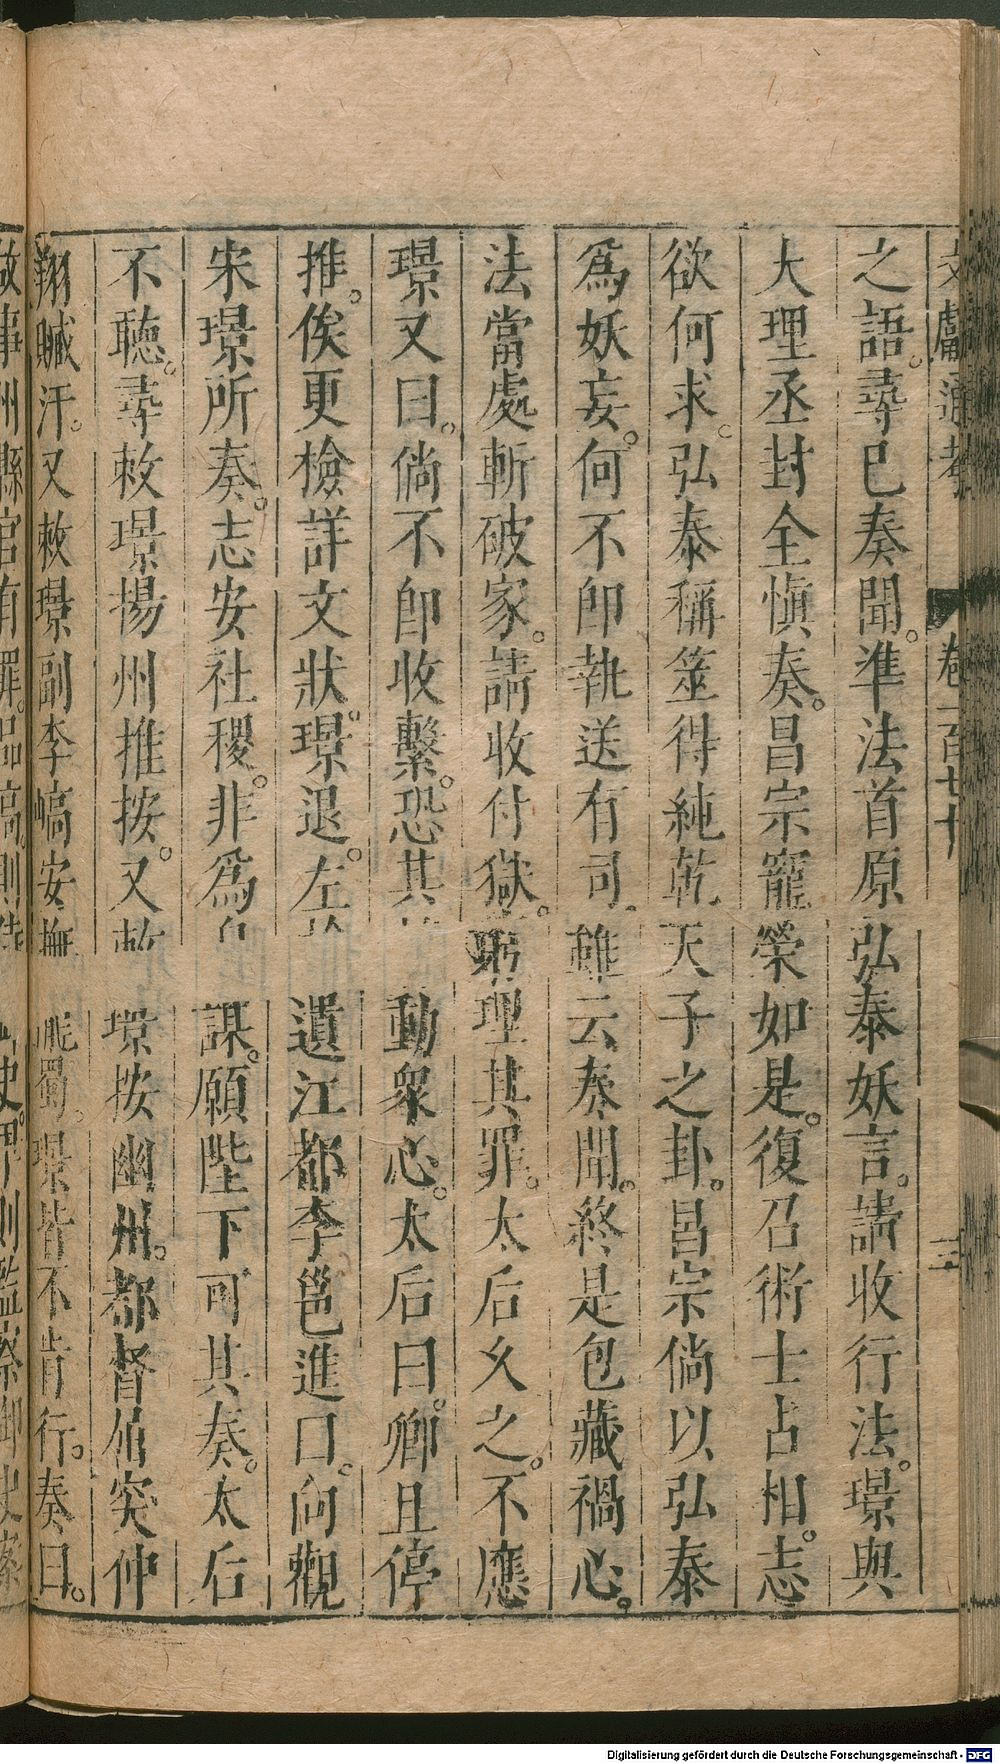 文獻通考 卷一百七十 三
之語。尋已奏聞。準法首原弘泰妖言。請收行法。璟與
大理丞封全愼奏。昌宗寵榮如是。復召術士占相。志
欲何求。弘泰稱筮得純乾天子之卦。昌宗倘以弘泰
爲妖妄。何不卽執送有司。雖云奏聞。終是包藏禍心。
法當處斬破家。請收付獄。窮理其罪。太后久之。不應
璟又曰。倘不卽收繫。恐其動衆心。太后曰。卿且停
推。俟更檢詳文狀。璟退。左遺江都李邕進口。向觀
宋璟所奏。志安社稷。非爲謀。願陛下可其奏。太后
不聽。尋敕璟揚州推按。又敕璟按幽州。都督屈突仲
翔贓汗。又敕璟副李嶠安撫隴蜀。璟皆不肯行。奏曰。
故事州縣官有罪。品高。則侍御史。卑則監察御史案
Digitalisierung gefördert durch die Deutsche Forschungsgemeinschaft - DFG